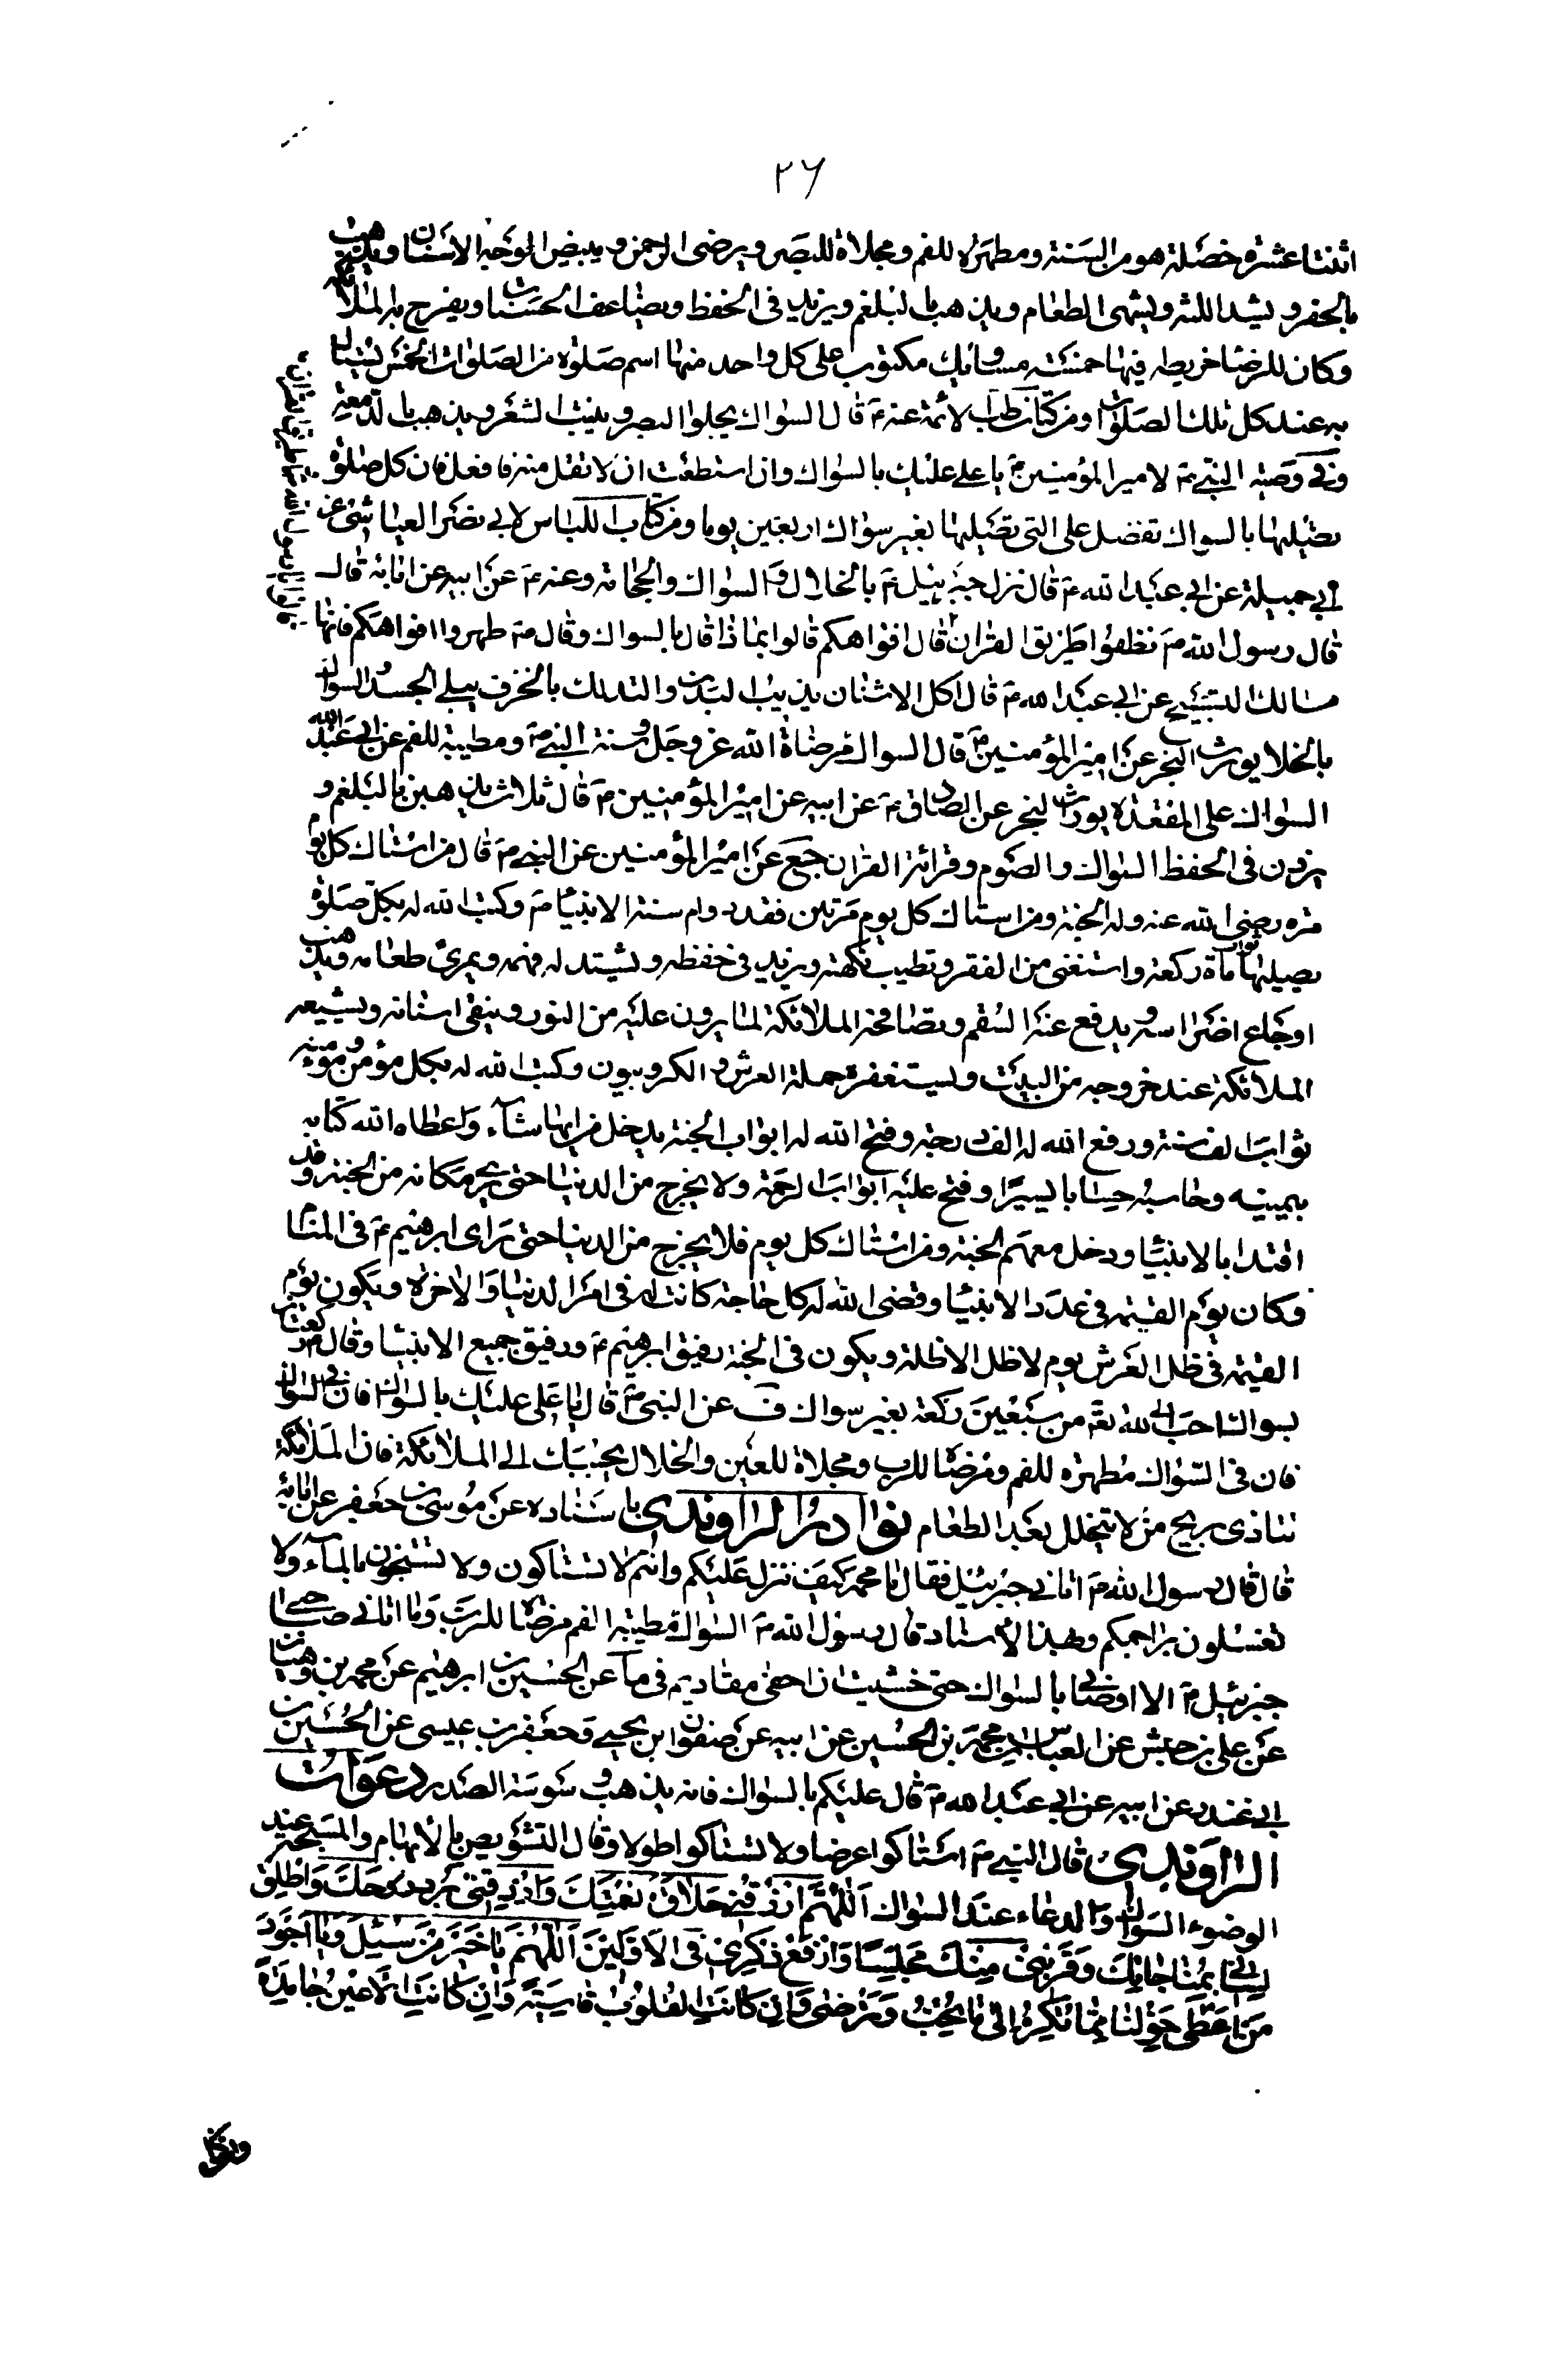 ٢٦
اثنتا عشرة خصلة هو من السنة ومطهرة للفم ومجلاة للبصر ويرضى الرحمن ويبيض الاسنان ويذهب
بالحفر ويشد اللثة ويشهى الطعام ويذهب بالبلغم ويزيد فى الحفظ ويضاعف الحسنات ويفرح به الملائكة
وكان للرضا خريطة فيها خمسة مساويك مكتوب على كل واحد منها اسم صلوة من الصلوات الخمس يستاك
به عند كل تلك الصلوات ومن كتاب طب الائمة عنه ع قال السواك يجلوا البصر وينبت الشعر ويذهب بالدمعة
وفى وصية النبى ص لامير المؤمنين ع يا على عليك بالسواك وان استطعت ان لا تقل منه فافعل فان كل صلوة
تصليها بالسواك تفضل على التى تصليها بغير سواك اربعين يوما ومن كتاب اللباس لابى نضر العياشى عن
ابى جميلة عن ابى عبد الله ع قال نزل جبرئيل ع بالخلال والسواك والحجامة وعنه ع عن ابيه عن ابائه قال
قال رسول الله ص نظفوا طريق القران قال افواهكم قالوا بماذا قال بالسواك وقال ص طهروا افواهكم فانها
مسالك التسبيح عن ابى عبد الله ع قال اكل الاشنان يذيب البدن والتدلك بالخزف يبلى الجسد والسواك
بالخلا يورث البخر عن امير المؤمنين ع قال السواك مرضاة الله عز وجل وسنة النبى ص ومطيبة للفم عن ابى عبد الله
السواك على المقعدة يورث البخر عن الصادق ع عن ابيه عن امير المؤمنين ع قال ثلاث يذهبن بالبلغم و
يزدن فى الحفظ السواك والصوم وقرائة القران جع عن امير المؤمنين عن النبى ص قال من استاك كل يوم
مرة رضى الله عنه وله الجنة ومن استاك كل يوم مرتين فقد دام سنة الانبيا ص وكتب الله له بكل صلوة
يصيلها ثواب مائة ركعة واستغنى من الفقر وتطيب نكهته ويزيد فى حفظه ويشتد له فهمه ويمرئ طعامه ويذهب
اوجاع اضراسه ويدفع عنه السقم وتصافحه الملائكة لما يرون عليه من النور وينقى اسنانه وتشيعه
الملائكة عند خروجه من البيت ويستغفر حملة العرش والكروبيون وكتب الله له بكل مؤمن ومؤمنة
ثواب الف سنة ورفع الله له الف درجة وفتح الله له ابواب الجنة يدخل من ايها شاء واعطاه الله كتابه
بيمينه وحاسبه حسابا يسيرا وفتح عليه ابواب الرحمة ولا يخرج من الدنيا حتى يرى مكانه من الجنة وقد
اقتدا بالانبيا ودخل معهم الجنة ومن استاك كل يوم فلا يخرج من الدنيا حتى يرى ابرهيم ع فى المنام
وكان يوم القيمة فى عدد الانبيا وقضى الله له كل حاجة كانت له فى امر الدنيا والاخرة ويكون يوم
القيمة فى ظل العرش يوم لا ظل الا ظله ويكون فى الجنة رفيق ابرهيم ع ورفيق جميع الانبيا وقال ص ركعتان
بسواك احب الى الله تع من سبعين ركعة بغير سواك ف عن النبى ص قال يا على عليك بالسواك فان فى السواك
فان فى السواك مطهرة للفم ومرضاة للرب ومجلاة للعين والخلال يحببك الى الملائكة فان الملائكة
تتاذى بريح من لا يتخلل بعد الطعام نوادر الراوندى باسناده عن موسى بن جعفر عن ابائه
قال قال رسول الله ص اتانى جبرئيل فقال يا محمد كيف ننزل عليكم وانتم لا تستاكون ولا تستنجون بالماء ولا
تغسلون براجمكم وبهذا الاسناد قال رسول الله ص السواك مطيبة الفم مرضاة للرب وما اتانى صاحبى
جبرئيل ع الا اوصانى بالسواك حتى خشيت ان احفى مقاديم فى ما عن الحسين بن ابرهيم عن محمد بن وهبان
عن على بن حبش عن العباس بن محمد بن الحسين عن ابيه عن صفوان بن يحيى وجعفر بن عيسى عن الحسين بن
ابى غندر عن ابيه عن ابى عبد الله ع قال عليكم بالسواك فانه يذهب وسوسة الصدر دعوات
الراوندى قال النبى ص استاكوا عرضا ولا تستاكوا طولا وقال التشويص بالابهام والمسبحة عند
الوضوء السواك والدعاء عند السواك اللهم ارزقنى حلاوة نعمتك واذقنى برد روحك واطلق
لسانى بمناجاتك وقربنى منك مجلسا وارفع ذكرى فى الاولين اللهم يا خير من سئل ويا اجود
من اعطى حولنا مما تكره الى ما تحب وترضى وان كانت القلوب قاسية وان كانت الاعين جامدة